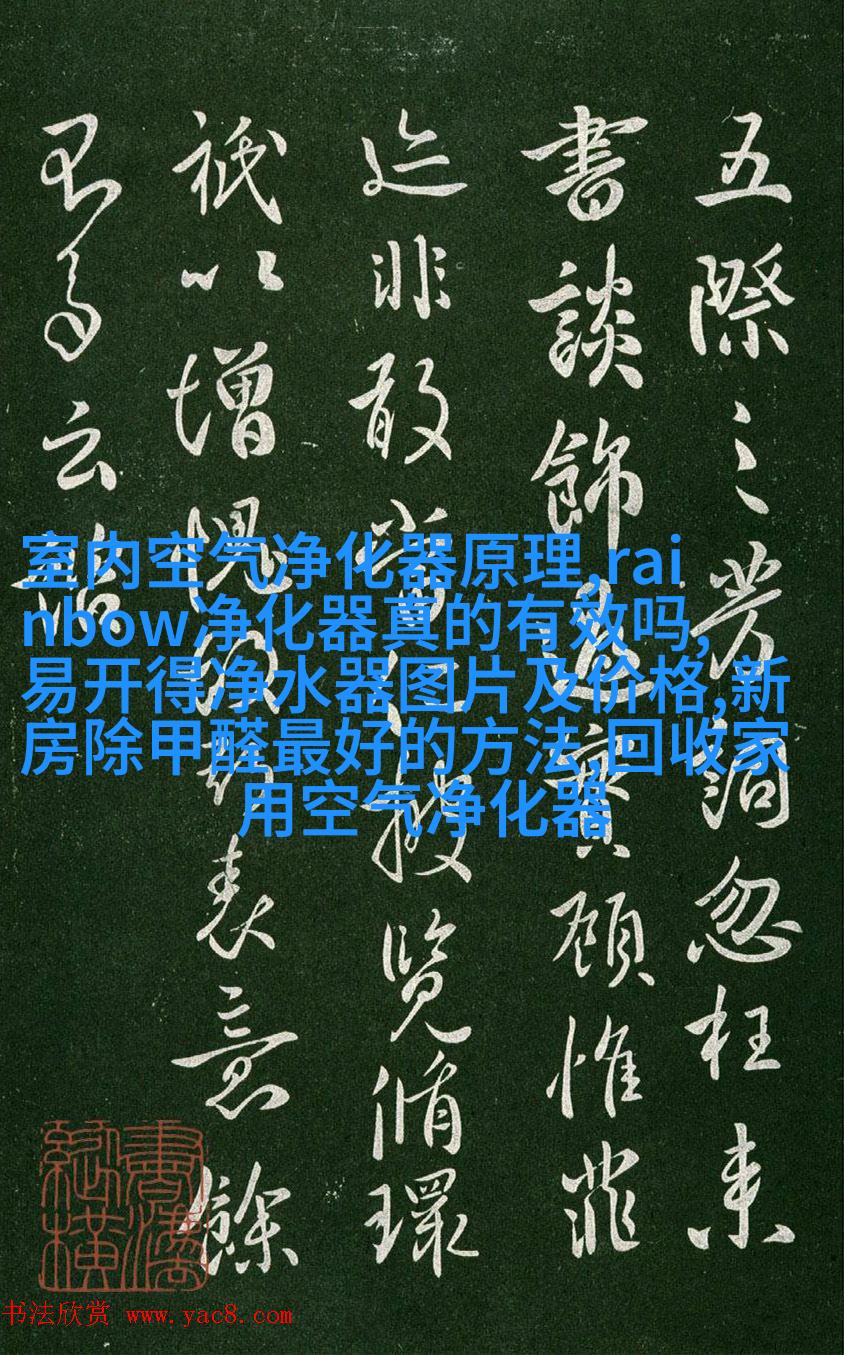 五際之芳詞忽枉来
書談飾逾實顧惟菲
迹非敢當仁披覽循環
祇以增愧表意餘
云
室内空气净化器原理,rai
nbow净化器真的有效吗,
易开得净水器图片及价格,新
房除甲醛最好的方法,回收家
用空气净化器
书法欣赏 www.yac8.com